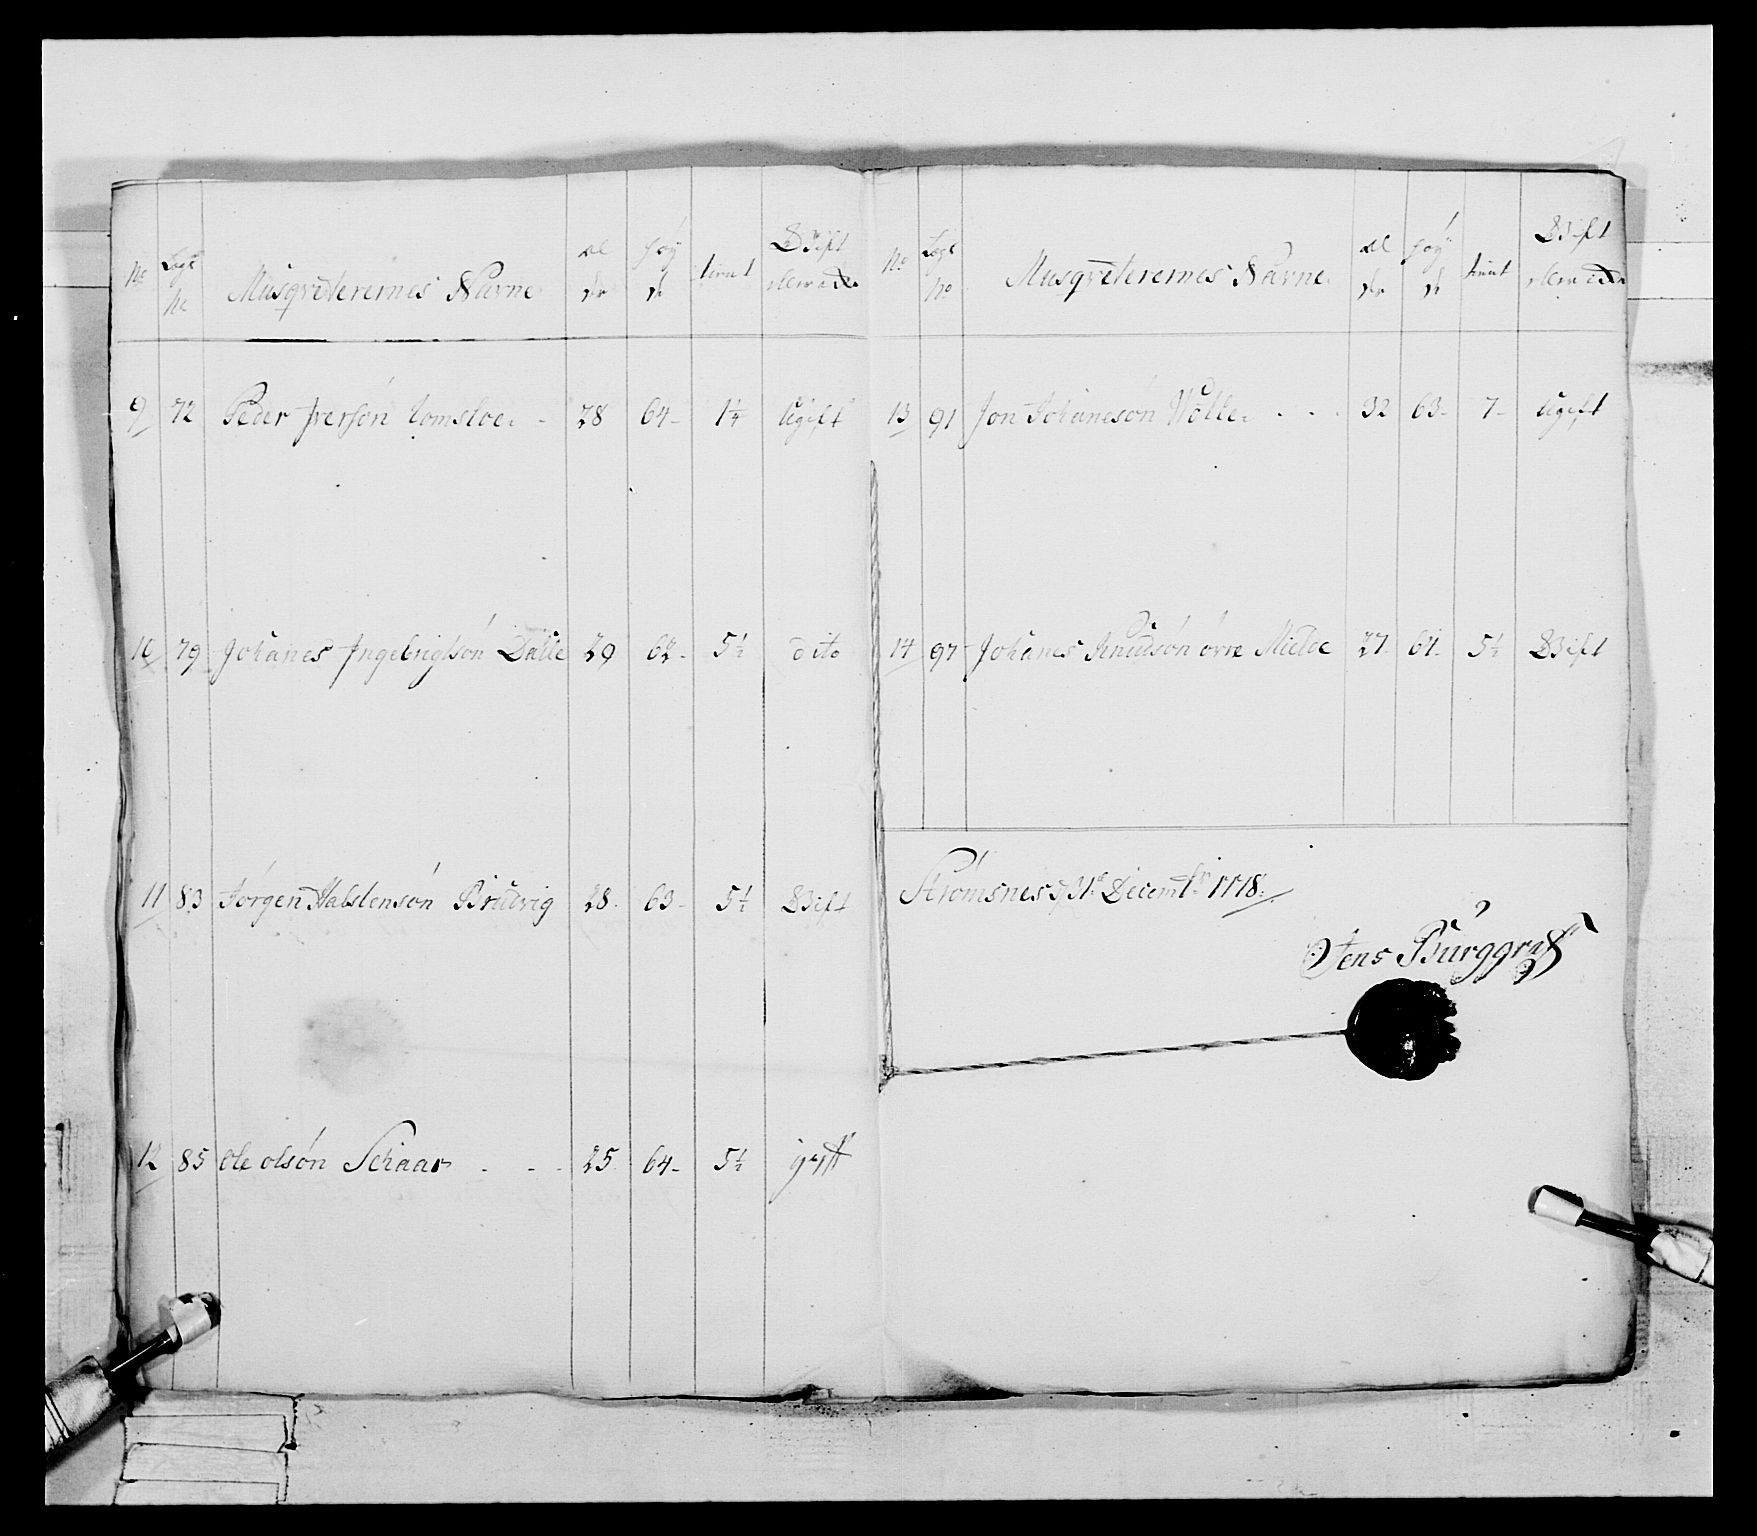 No
Legs No
Musqveterernes Navne
Al der
Høy de
tint
Gift eller ide
9 72 Peder Iversøn Lomsloe. - 28 64- 1¼ Ugift
10 79 Johanes Ingebrigtsøn Dalle 29 62- 5½ dito
11 83 Jørgen Halstensøn Brudvig 28. 63- 5½ Gift
12 85 Ole olsøn Schaar - - - 25. 64- 5½ gift
No
Legs No
Musqveterernes Navne.
Al der
Høy de
tint
Gift eller ide
13 91 Jon Johanesøn Wolle. - - - 32 63- 7- Ugift
14 97 Johanes Knudsøn øvre Mielde 27- 61- 5½ Gift
Strømsnes d 31te Decembr 1778.
Jens Burggraf